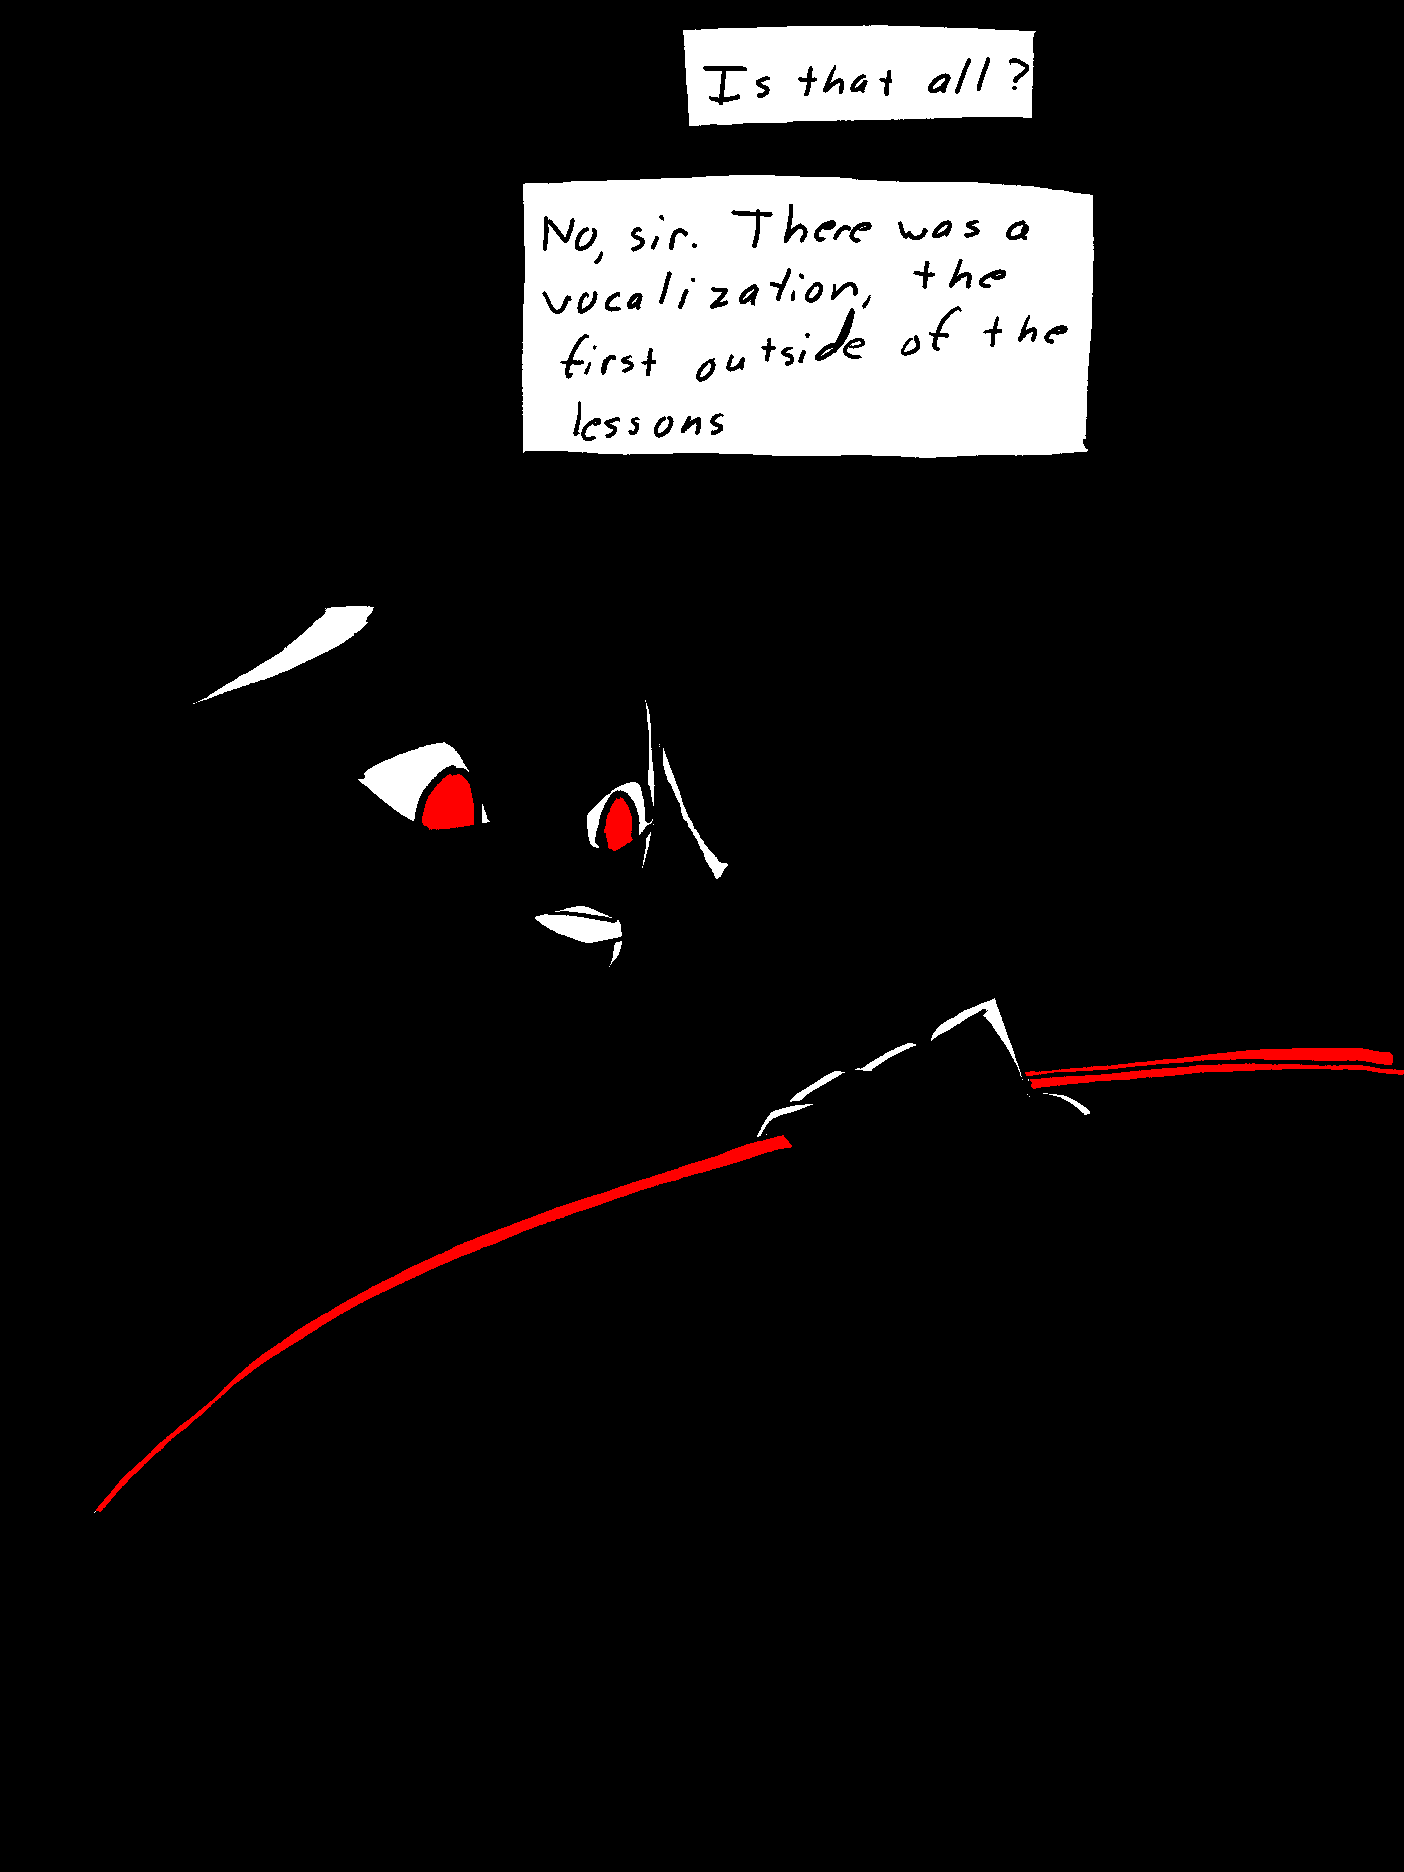 Is that all?
No, sir. There was a
vocalization, the
first outside of the
lessons